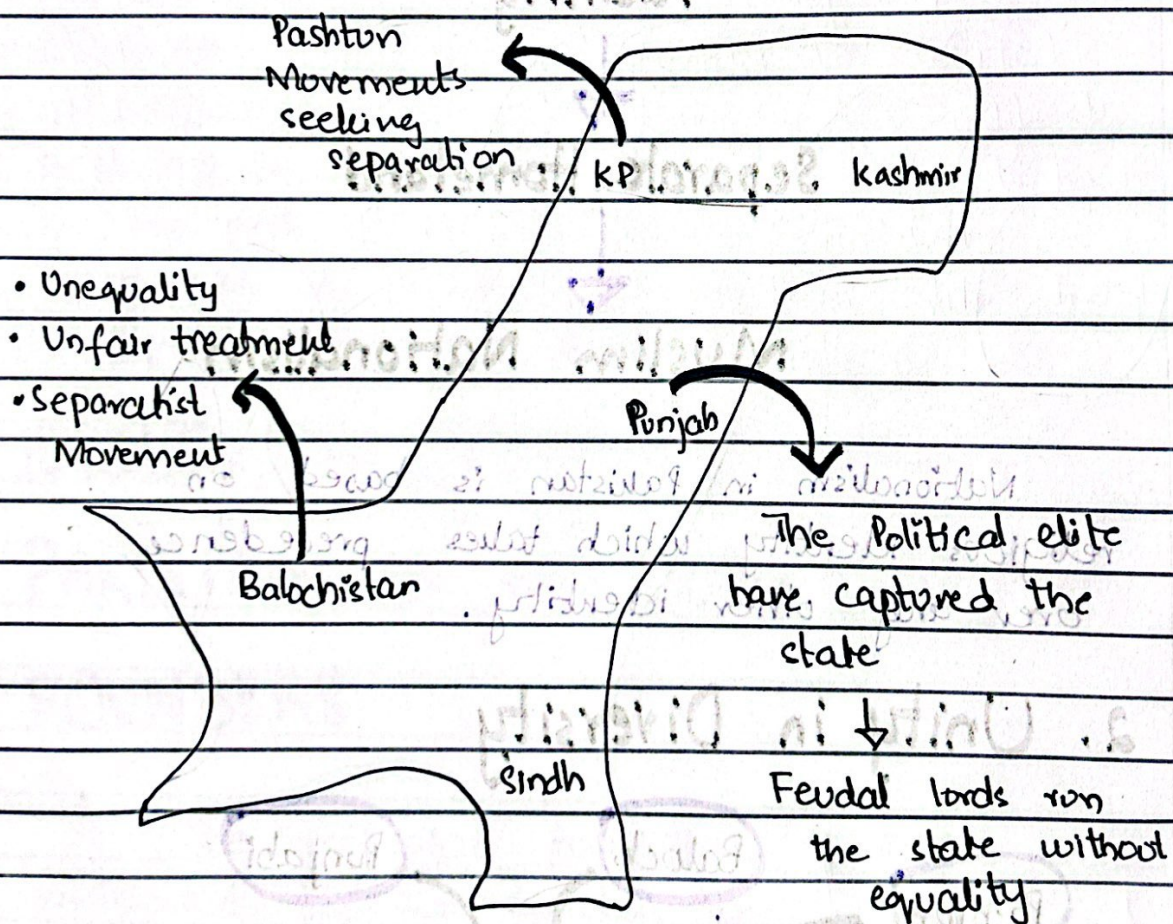 Pashtun
Movements
seeking
separation
KP
Kashmir
• Unequality
• Unfair treatment
• Separatist
Movement
Balochistan
Punjab
The Political elite
have captured the
state
Sindh
Feudal lords run
the state without
equality